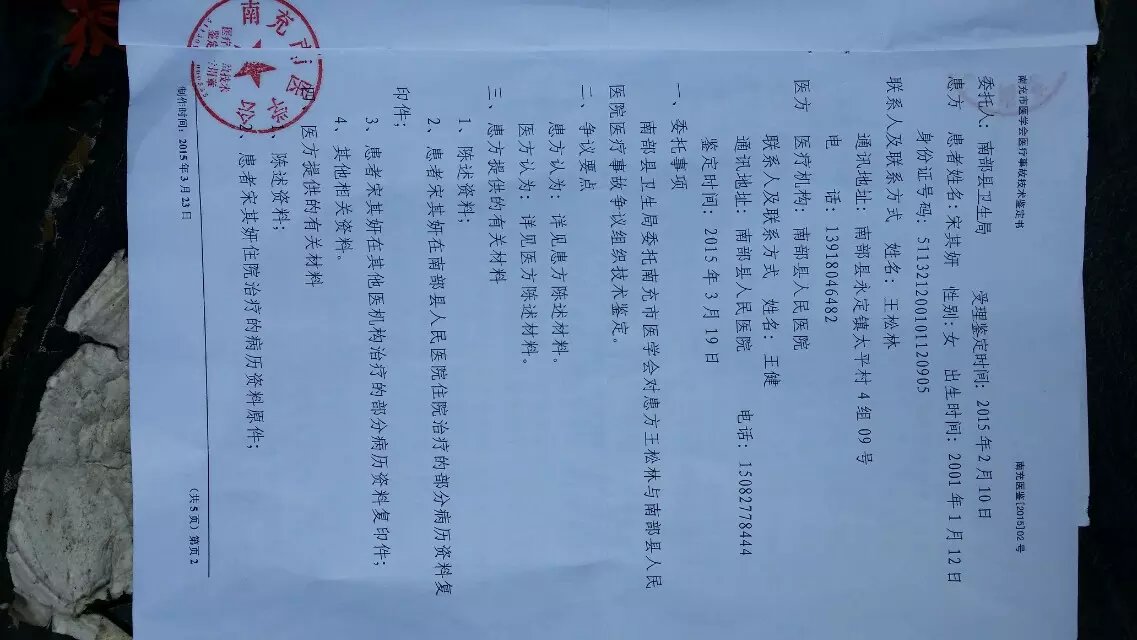 南充市医学会医疗事故技术鉴定书 南充医鉴[2015]02号
委托人：南部县卫生局 受理鉴定时间：2015年2月10日
患方 患者姓名：宋其妍 性别:女 出生时间：2001年1月12日
身份证号码：511321200101120905
联系人及联系方式 姓名：王松林
通讯地址：南部县永定镇太平村4组09号
电 话：13918046482
医方 医疗机构：南部县人民医院
联系人及联系方式 姓名：王健
通讯地址：南部县人民医院 电话：15082778444
鉴定时间：2015年3月19日
一、委托事项
南部县卫生局委托南充市医学会对患方王松林与南部县人民
医院医疗事故争议组织技术鉴定。
二、争议要点
患方认为：详见患方陈述材料。
医方认为：详见医方陈述材料。
三、患方提供的有关材料
1、陈述资料；
2、患者宋其妍在南部县人民医院住院治疗的部分病历资料复
印件；
3、患者宋其妍在其他医机构治疗的部分病历资料复印件；
4、其他相关资料。
医方提供的有关材料
陈述资料；
患者宋其妍住院治疗的病历资料原件；
制作时间：2015年3月23日 （共5页）第页2
南充市医学会
医疗 故技术
鉴定 用章